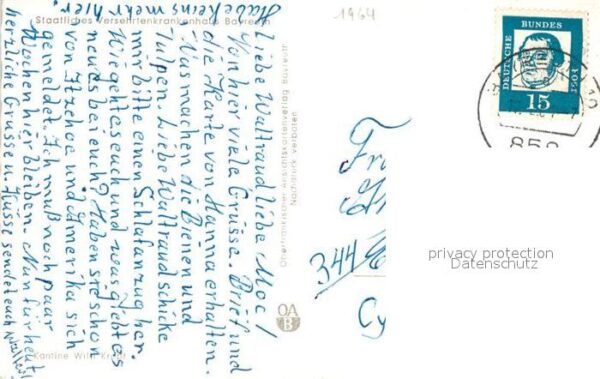 Staatliches Versehrtenkrankenhaus Bayreuth
Habe keins mehr hier.
1964
Liebe Waltraud liebe Moc!
Von hier viele Grüsse. Brief und
die Karte von Hanna erhalten.
Was machen die Bienen und
Tulpen. Liebe Waltraud schicke
mir bitte einen Schlafanzug her.
Wie geht es euch und was gibt es
neues bei euch? Haben sie schon
von Itzehoe und Amerika sich
gemeldet. Ich muß noch paar
Wochen hier bleiben. Nun für heute
herzliche Grüsse u. Küsse sendet euch
Kantine Willi
Oberfränkischer Ansichtskartenverlag Bayreuth
Nachdruck verboten
OA
B
DEUTSCHE BUNDESPOST
15
Fr
344
Cy
858
privacy protection
Datenschutz